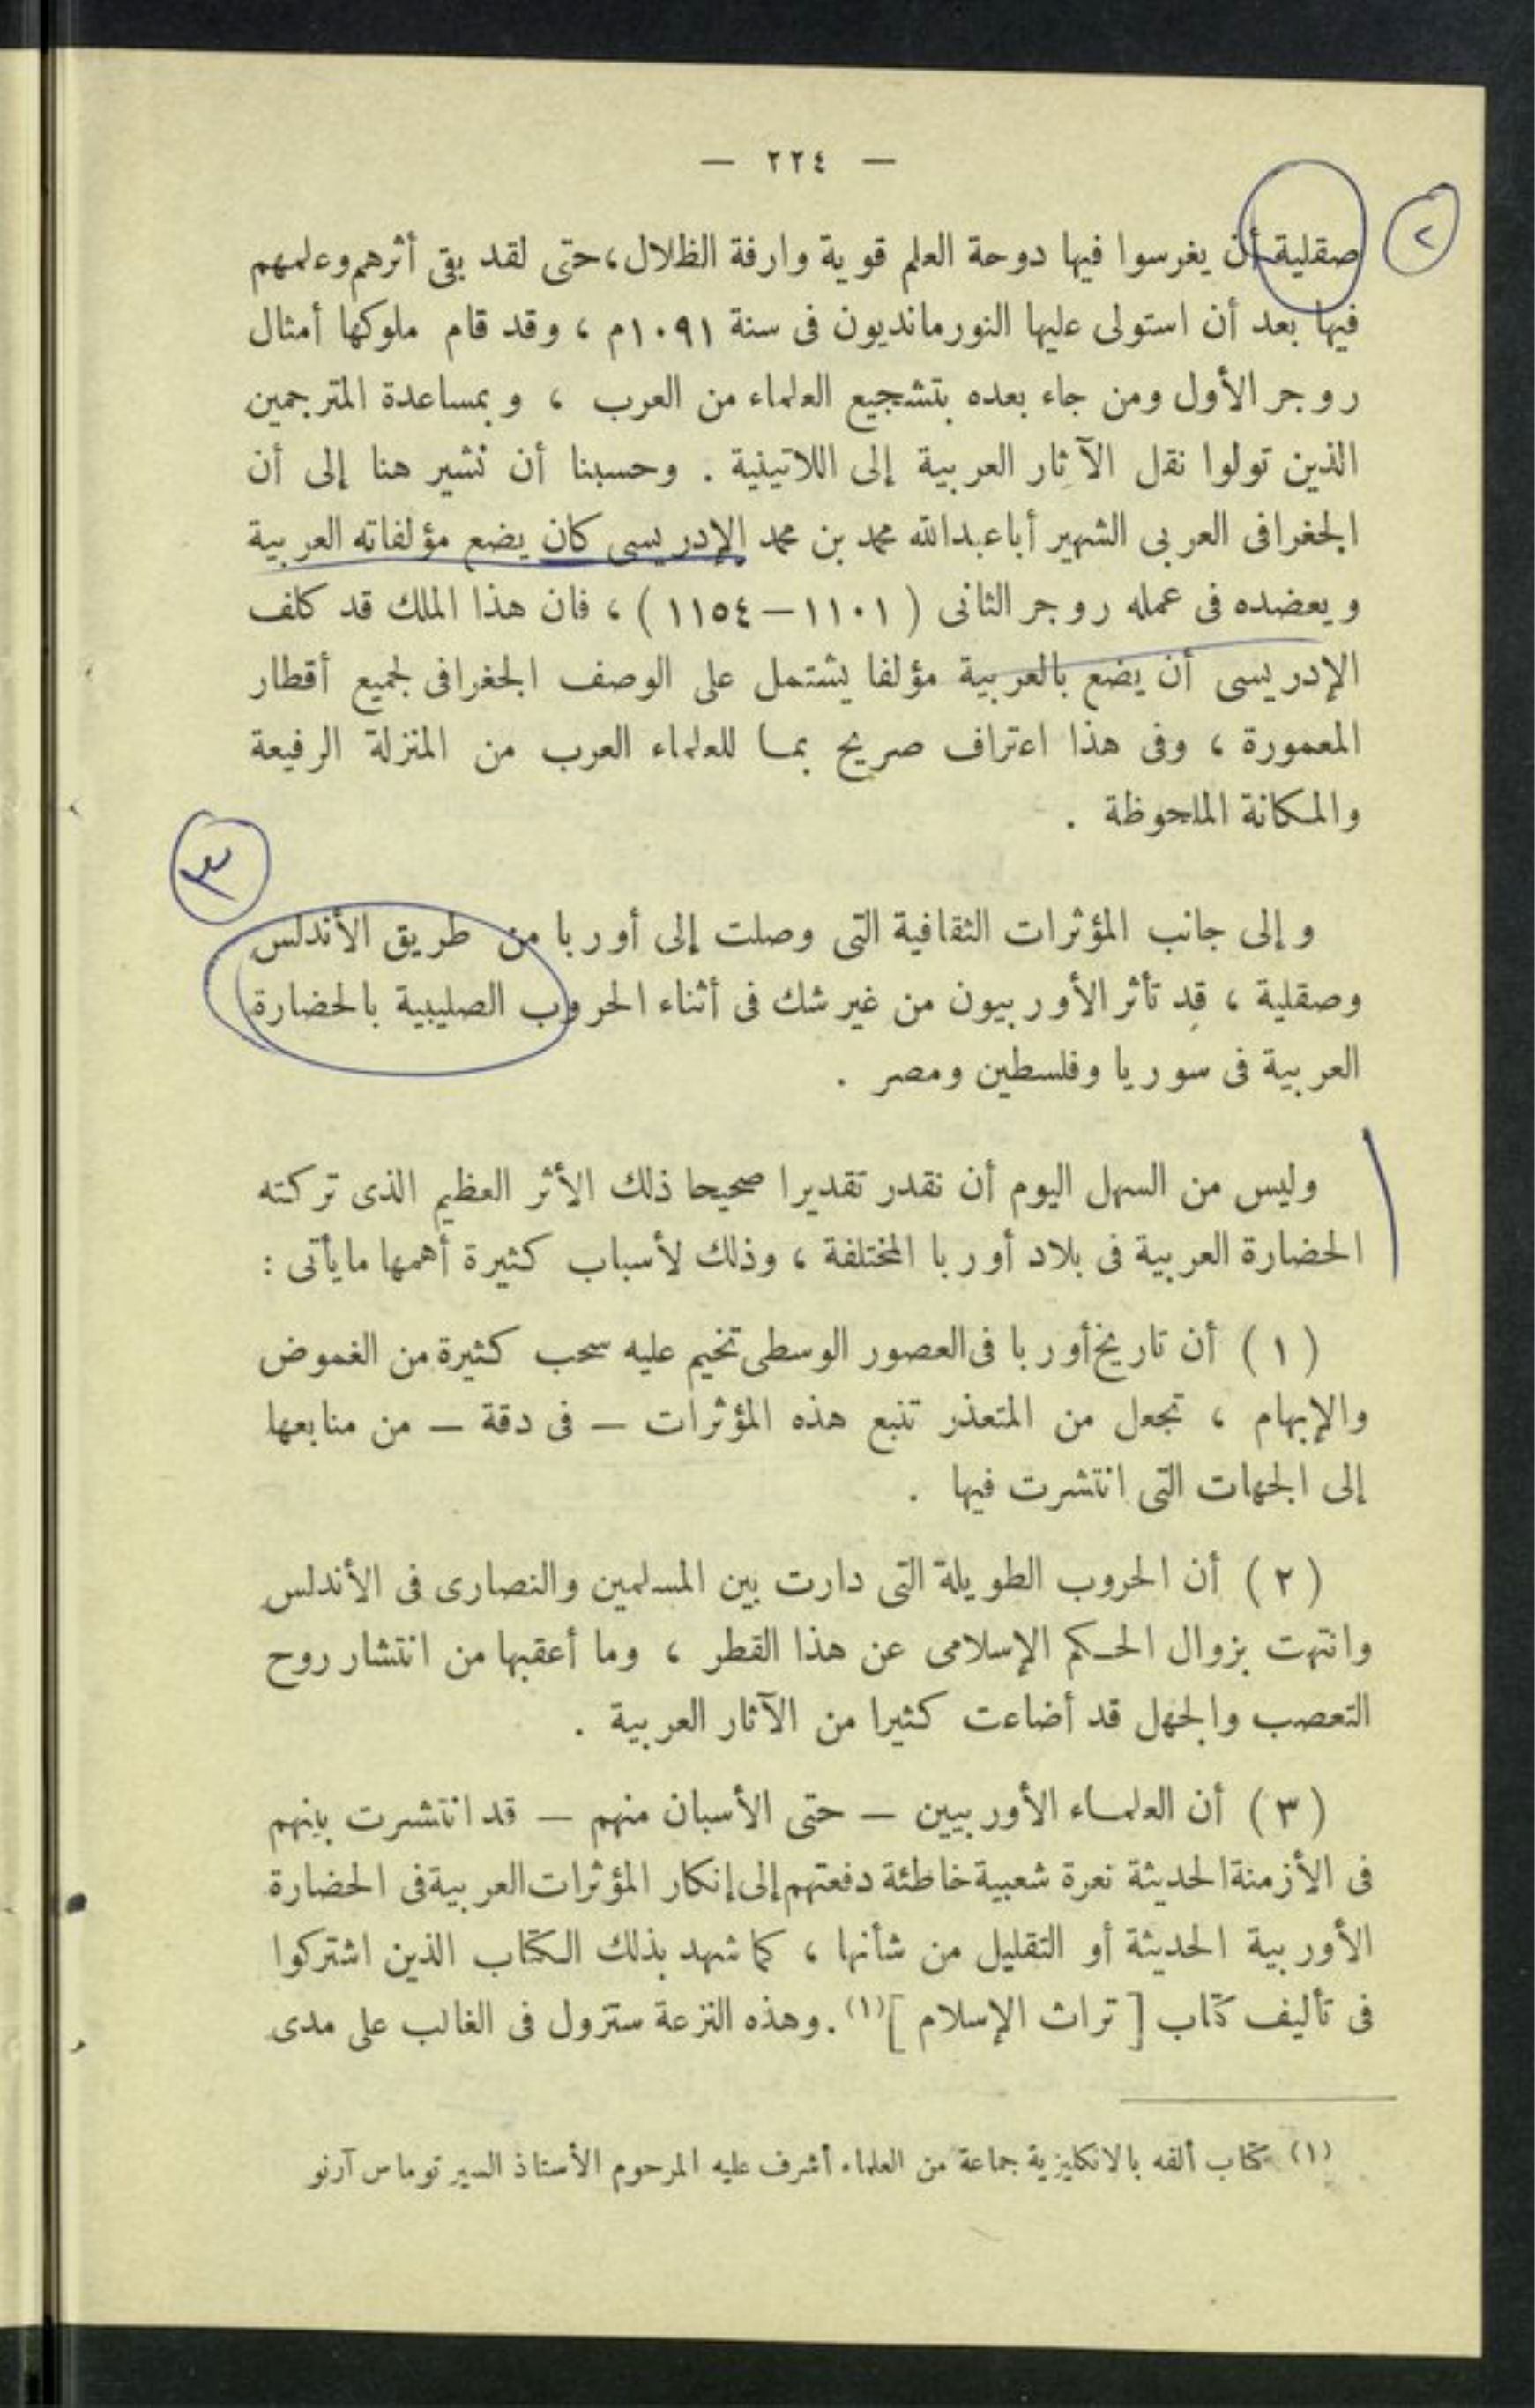 — ٢٢٤ —
٢
صقلية أن يغرسوا فيها دوحة العلم قوية وارفة الظلال، حتى لقد بقى أثرهم وعلمهم
فيها بعد أن استولى عليها النورمانديون فى سنة ١٠٩١م ، وقد قام ملوكها أمثال
روجر الأول ومن جاء بعده بتشجيع العلماء من العرب ، وبمساعدة المترجمين
الذين تولوا نقل الآثار العربية إلى اللاتينية . وحسبنا أن نشير هنا إلى أن
الجغرافى العربى الشهير أبا عبدالله محمد بن محمد الإدريسى كان يضع مؤلفاته العربية
ويعضده فى عمله روجر الثانى ( ١١٠١ – ١١٥٤ ) ، فان هذا الملك قد كلف
الإدريسى أن يضع بالعربية مؤلفا يشتمل على الوصف الجغرافى لجميع أقطار
المعمورة ، وفى هذا اعتراف صريح بما للعلماء العرب من المنزلة الرفيعة
والمكانة الملحوظة .
٣
وإلى جانب المؤثرات الثقافية التى وصلت إلى أوربا من طريق الأندلس
وصقلية ، قد تأثر الأوربيون من غير شك فى أثناء الحروب الصليبية بالحضارة
العربية فى سوريا وفلسطين ومصر .
وليس من السهل اليوم أن نقدر تقديرا صحيحا ذلك الأثر العظيم الذى تركته
الحضارة العربية فى بلاد أوربا المختلفة ، وذلك لأسباب كثيرة أهمها ما يأتى :
( ١ ) أن تاريخ أوربا فى العصور الوسطى تخيم عليه سحب كثيرة من الغموض
والإبهام ، تجعل من المتعذر تتبع هذه المؤثرات – فى دقة – من منابعها
إلى الجهات التى انتشرت فيها .
( ٢ ) أن الحروب الطويلة التى دارت بين المسلمين والنصارى فى الأندلس
وانتهت بزوال الحكم الإسلامى عن هذا القطر ، وما أعقبها من انتشار روح
التعصب والجهل قد أضاعت كثيرا من الآثار العربية .
( ٣ ) أن العلماء الأوربيين – حتى الأسبان منهم – قد انتشرت بينهم
فى الأزمنة الحديثة نعرة شعبية خاطئة دفعتهم إلى إنكار المؤثرات العربية فى الحضارة
الأوربية الحديثة أو التقليل من شأنها ، كما شهد بذلك الكتاب الذين اشتركوا
فى تأليف كتاب [ تراث الإسلام ](١) . وهذه النزعة ستزول فى الغالب على مدى
(١) كتاب ألفه بالانكليزية جماعة من العلماء أشرف عليه المرحوم الأستاذ السير توماس آرنو